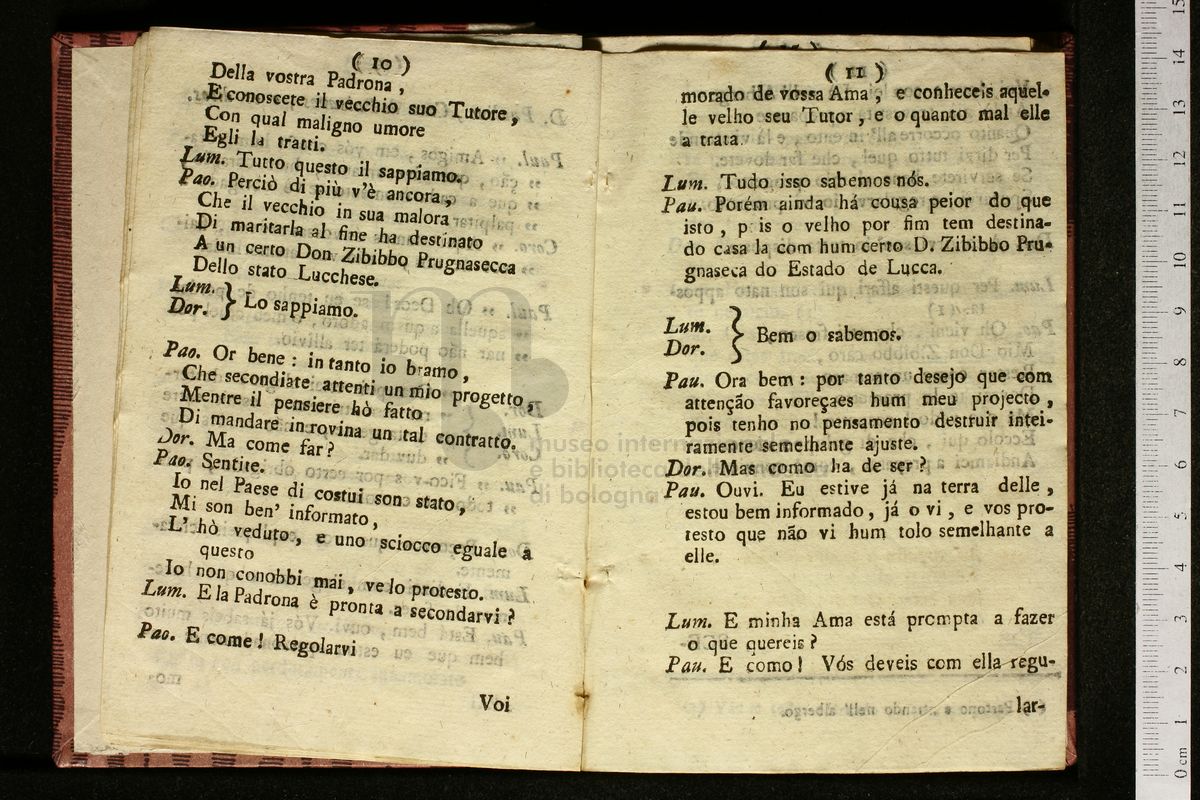 ( 10 )
Della vostra Padrona ,
E conoscete il vecchio suo Tutore ,
Con qual maligno umore
Egli la tratti.
Lum. Tutto questo il sappiamo.
Pao. Perciò di più v'è ancora ,
Che il vecchio in sua malora
Di maritarla al fine ha destinato
A un certo Don Zibibbo Prugnasecca
Dello stato Lucchese.
Lum.
Dor. } Lo sappiamo.
Pao. Or bene : in tanto io bramo ,
Che secondiate attenti un mio progetto ,
Mentre il pensiere hò fatto
Di mandare in rovina un tal contratto.
Dor. Ma come far ?
Pao. Sentite.
Io nel Paese di costui son stato ,
Mi son ben' informato ,
L' hò veduto , e uno sciocco eguale a
questo
Io non conobbi mai , ve lo protesto.
Lum. E la Padrona è pronta a secondarvi ?
Pao. E come ! Regolarvi
Voi
( 11 )
morado de vossa Ama , e conheceis aquel-
le velho seu Tutor , e o quanto mal elle
a trata.
Lum. Tudo isso sabemos nós.
Pau. Porém ainda há cousa peior do que
isto , p is o velho por fim tem destina-
do casa la com hum certo D. Zibibbo Pru-
gnaseca do Estado de Lucca.
Lum.
Dor. } Bem o sabemos.
Pau. Ora bem : por tanto desejo que com
attenção favoreçaes hum meu projecto ,
pois tenho no pensamento destruir intei-
ramente semelhante ajuste.
Dor. Mas como ha de ser ?
Pau. Ouvi. Eu estive já na terra delle ,
estou bem informado , já o vi , e vos pro-
testo que não vi hum tolo semelhante a
elle.
Lum. E minha Ama está prompta a fazer
o que quereis ?
Pau. E como ! Vós deveis com ella regu-
lar-
museo intern
e biblioteca
di bologna
0 cm 1 2 3 4 5 6 7 8 9 10 11 12 13 14 15